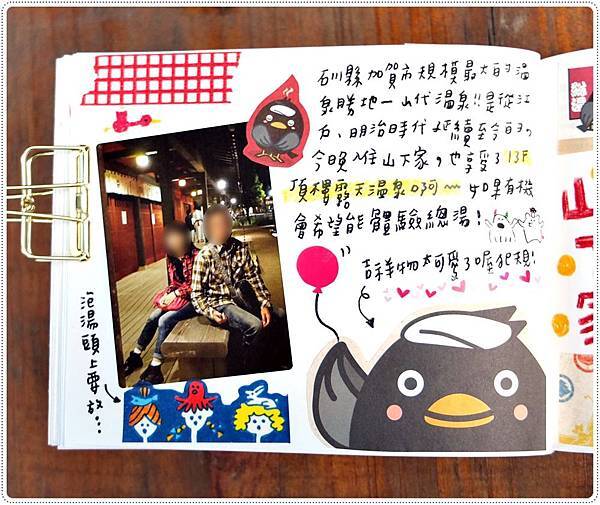 石川縣加賀市規模最大的溫
泉勝地一山代溫泉!!是從江
戶、明治時代延續至今的。
今晚住山下家,也享受了13F
頂樓露天溫泉啊~如果有機
會希望能體驗總湯!
吉祥物太可愛了喔犯規!
泡湯頭上要放...